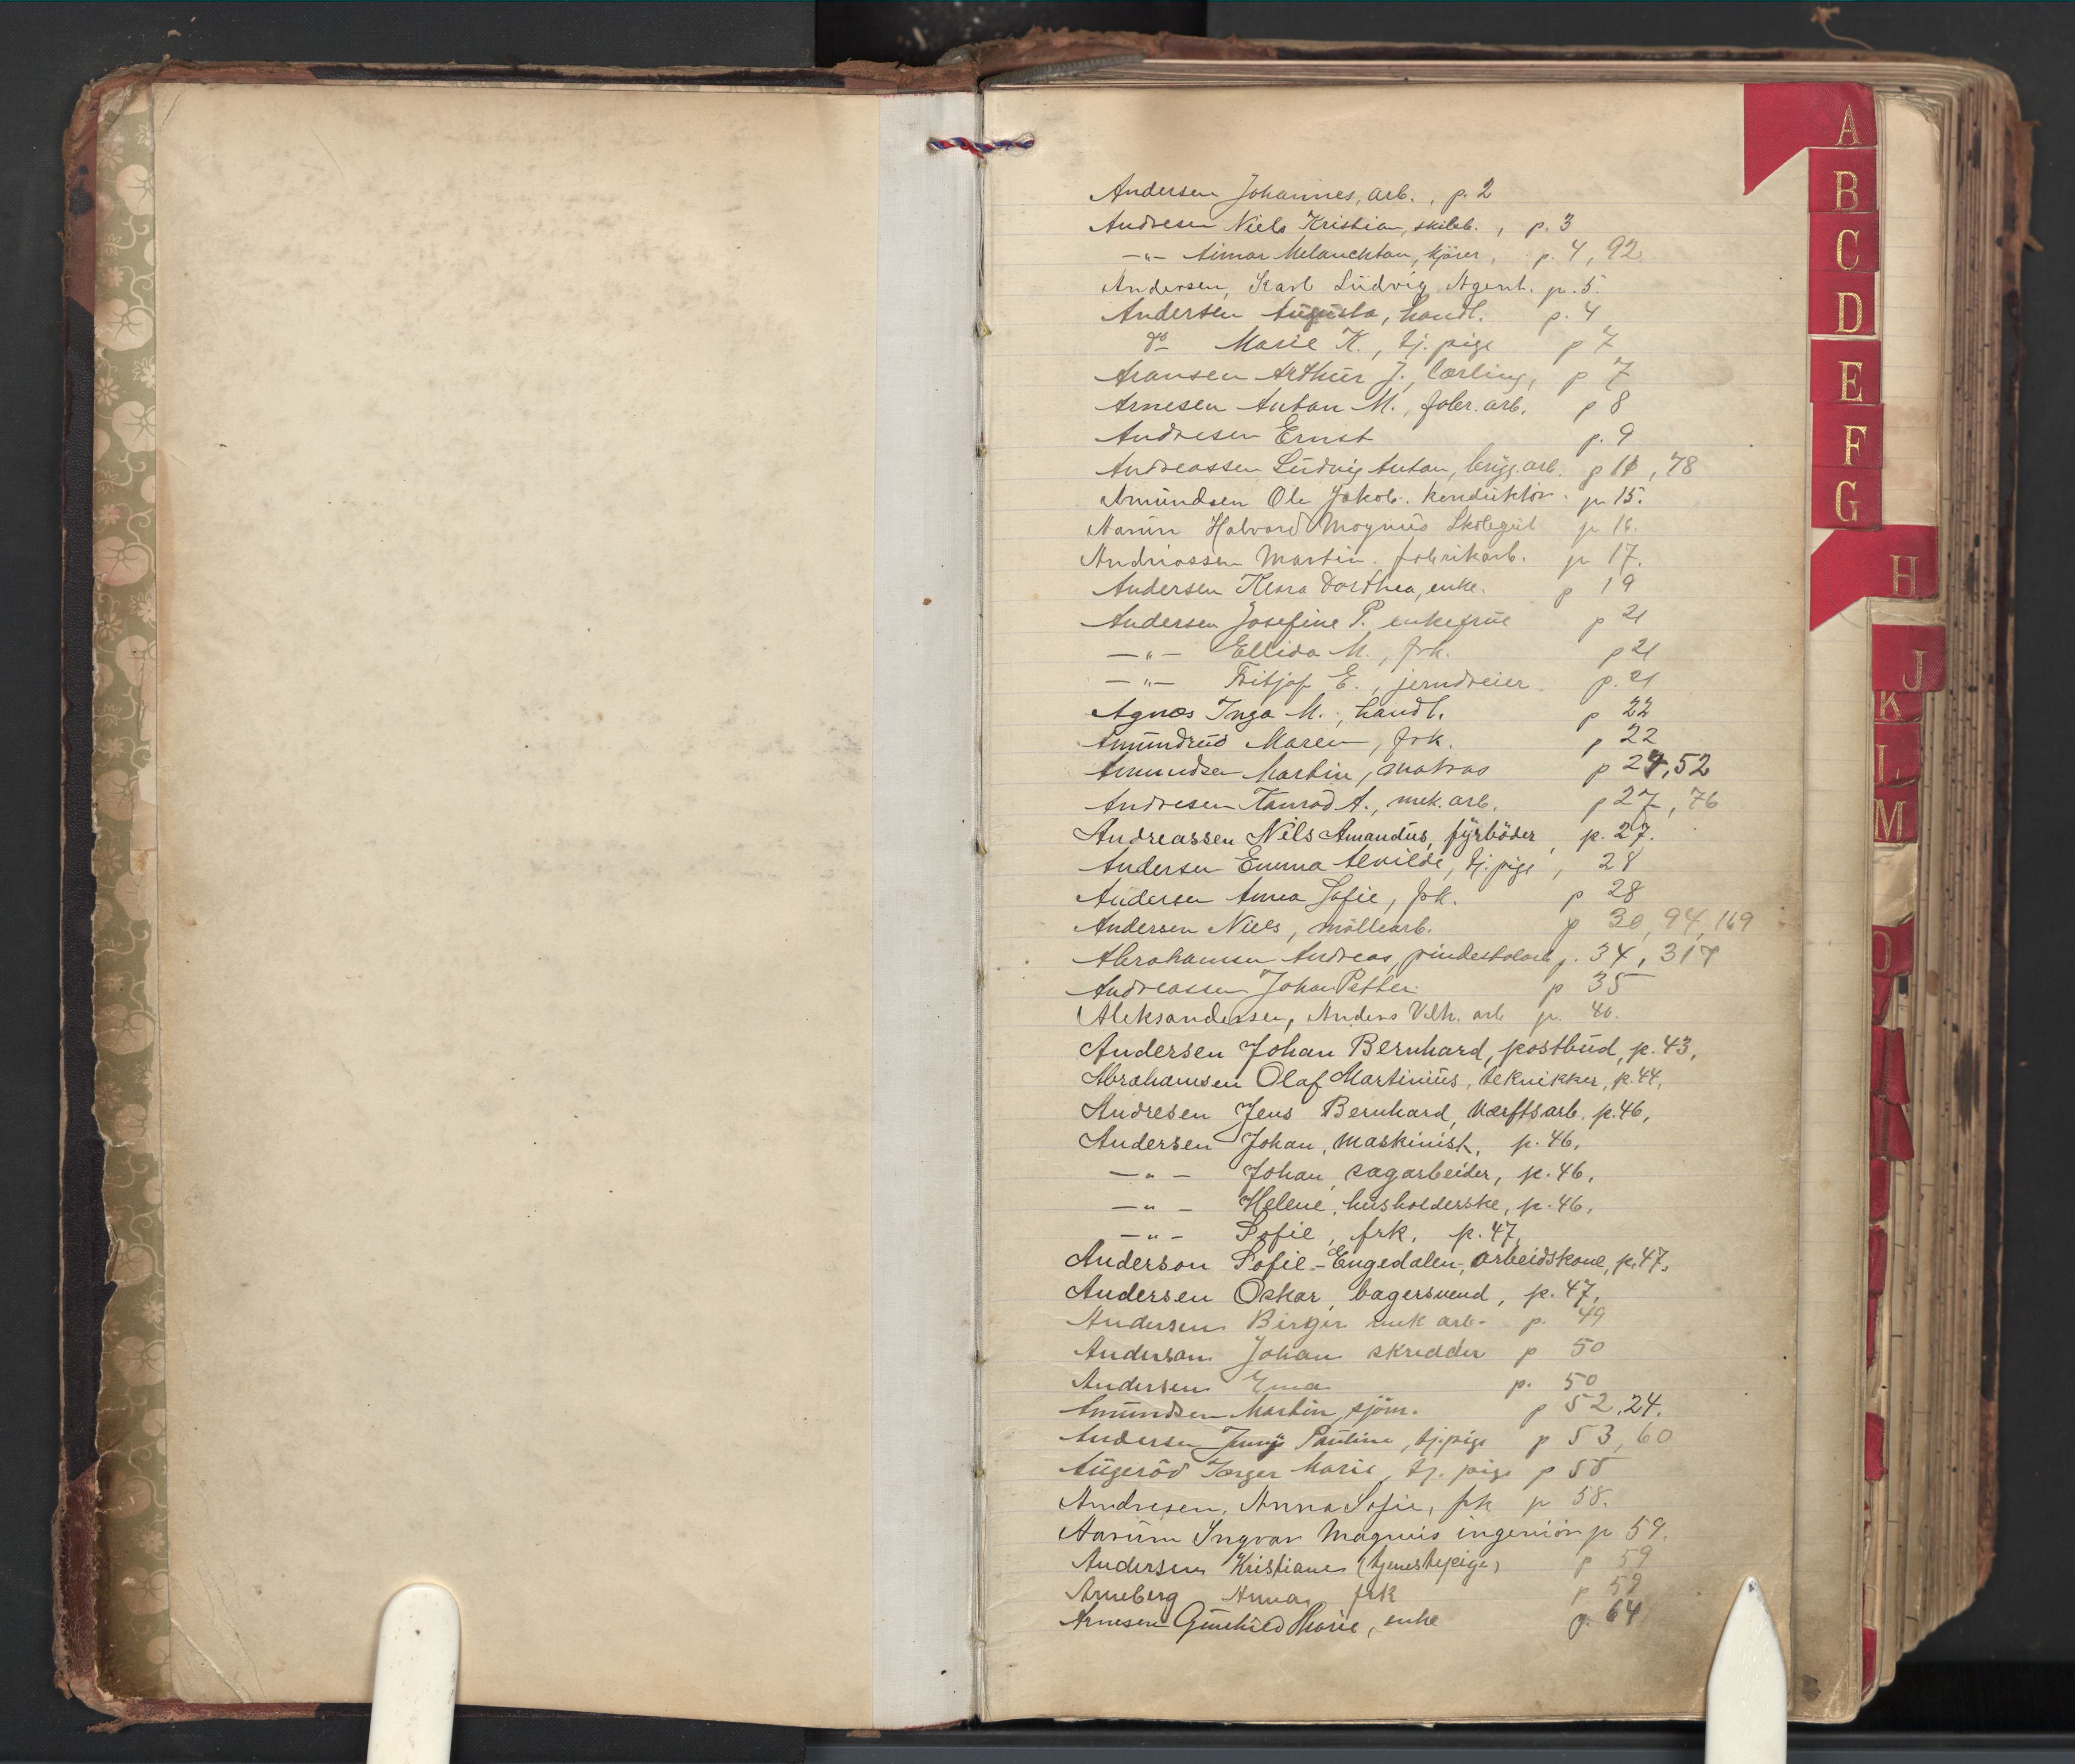 Andersen Johannes, arb., p. 2
Andresen Niels Kristian, skibsb., p. 3
—"— Aimar Melanchton, kjører, p. 4, 92
Andersen, Karl Ludvig Agent. p. 5.
Andersen Augusta, handl. p. 4
do Marie K., tj. pige p 7
Aronsen Arthur J., lærling, p 7
Arnesen Anton M., fabr. arb. p 8
Andresen Ernst p. 9
Andreassen Ludvig Anton, brygg. arb. p 11, 78
Amundsen Ole Jakob. konduktör. p 15.
Aarum Halvard Magnus p 16.
Andriassen Martin. fabrikarb. p 17.
Andersen Klara Dorthea, enke. p 19
Andersen Josefine P. enkefrue p 21
—"— Ellida M., frk. p 21
—"— Fritjof E., jerndreier p. 21
Agnæs Inga M., handl. p 22
Amundrud Maren, frk. p 22
Amundsen Martin, matros p 24, 52
Andresen Konrad A., mek. arb. p 27, 76
Andreassen Nils Amandus, fyrböder, p. 27.
Andersen Emma Alvilde, tj. pige, 28
Andersen Anna Sofie, frk. p 28
Andersen Niels, möllearb. p 30, 94, 169
Abrahamsen Andreas, pindestolarb p. 34, 317
Andreassen Johan Petter p 35
Aleksandersen, Anders Vilh. arb p. 40.
Andersen Johan Bernhard, postbud, p. 43,
Abrahamsen Olaf Martinius, tekniker, p. 44,
Andresen Jens Bernhard, værftsarb. p. 46,
Andersen Johan, maskinist, p. 46,
—"— Johan, sagarbeider, p. 46,
—"— Helene, husholderske, p. 46,
—"— Sofie, frk, p. 47,
Anderson Sofie -Engedalen-, arbeidskone, p. 47,
Andersen Oskar, bagersvend, p. 47,
Andersen Birger mek arb. p. 49
Anderson Johan skredder p 50
Andersen Emma p. 50
Amundsen Martin, sjöm. p 52, 24.
Andersen Jenny Pauline, tj. pige p 53, 60
Augeröd Inger Marie, tj. pige p 55
Andresen, Anna Sofie, frk p 58.
Aarum Ingvar Magnus ingeniör p 59.
Andersen Kristiane (tjenestepige) p 59
Arneberg Anna frk p 52
Arnesen Gunhild Marie, enke p. 64
A
B
C
D
E
F
G
H
J
K
L
M
O